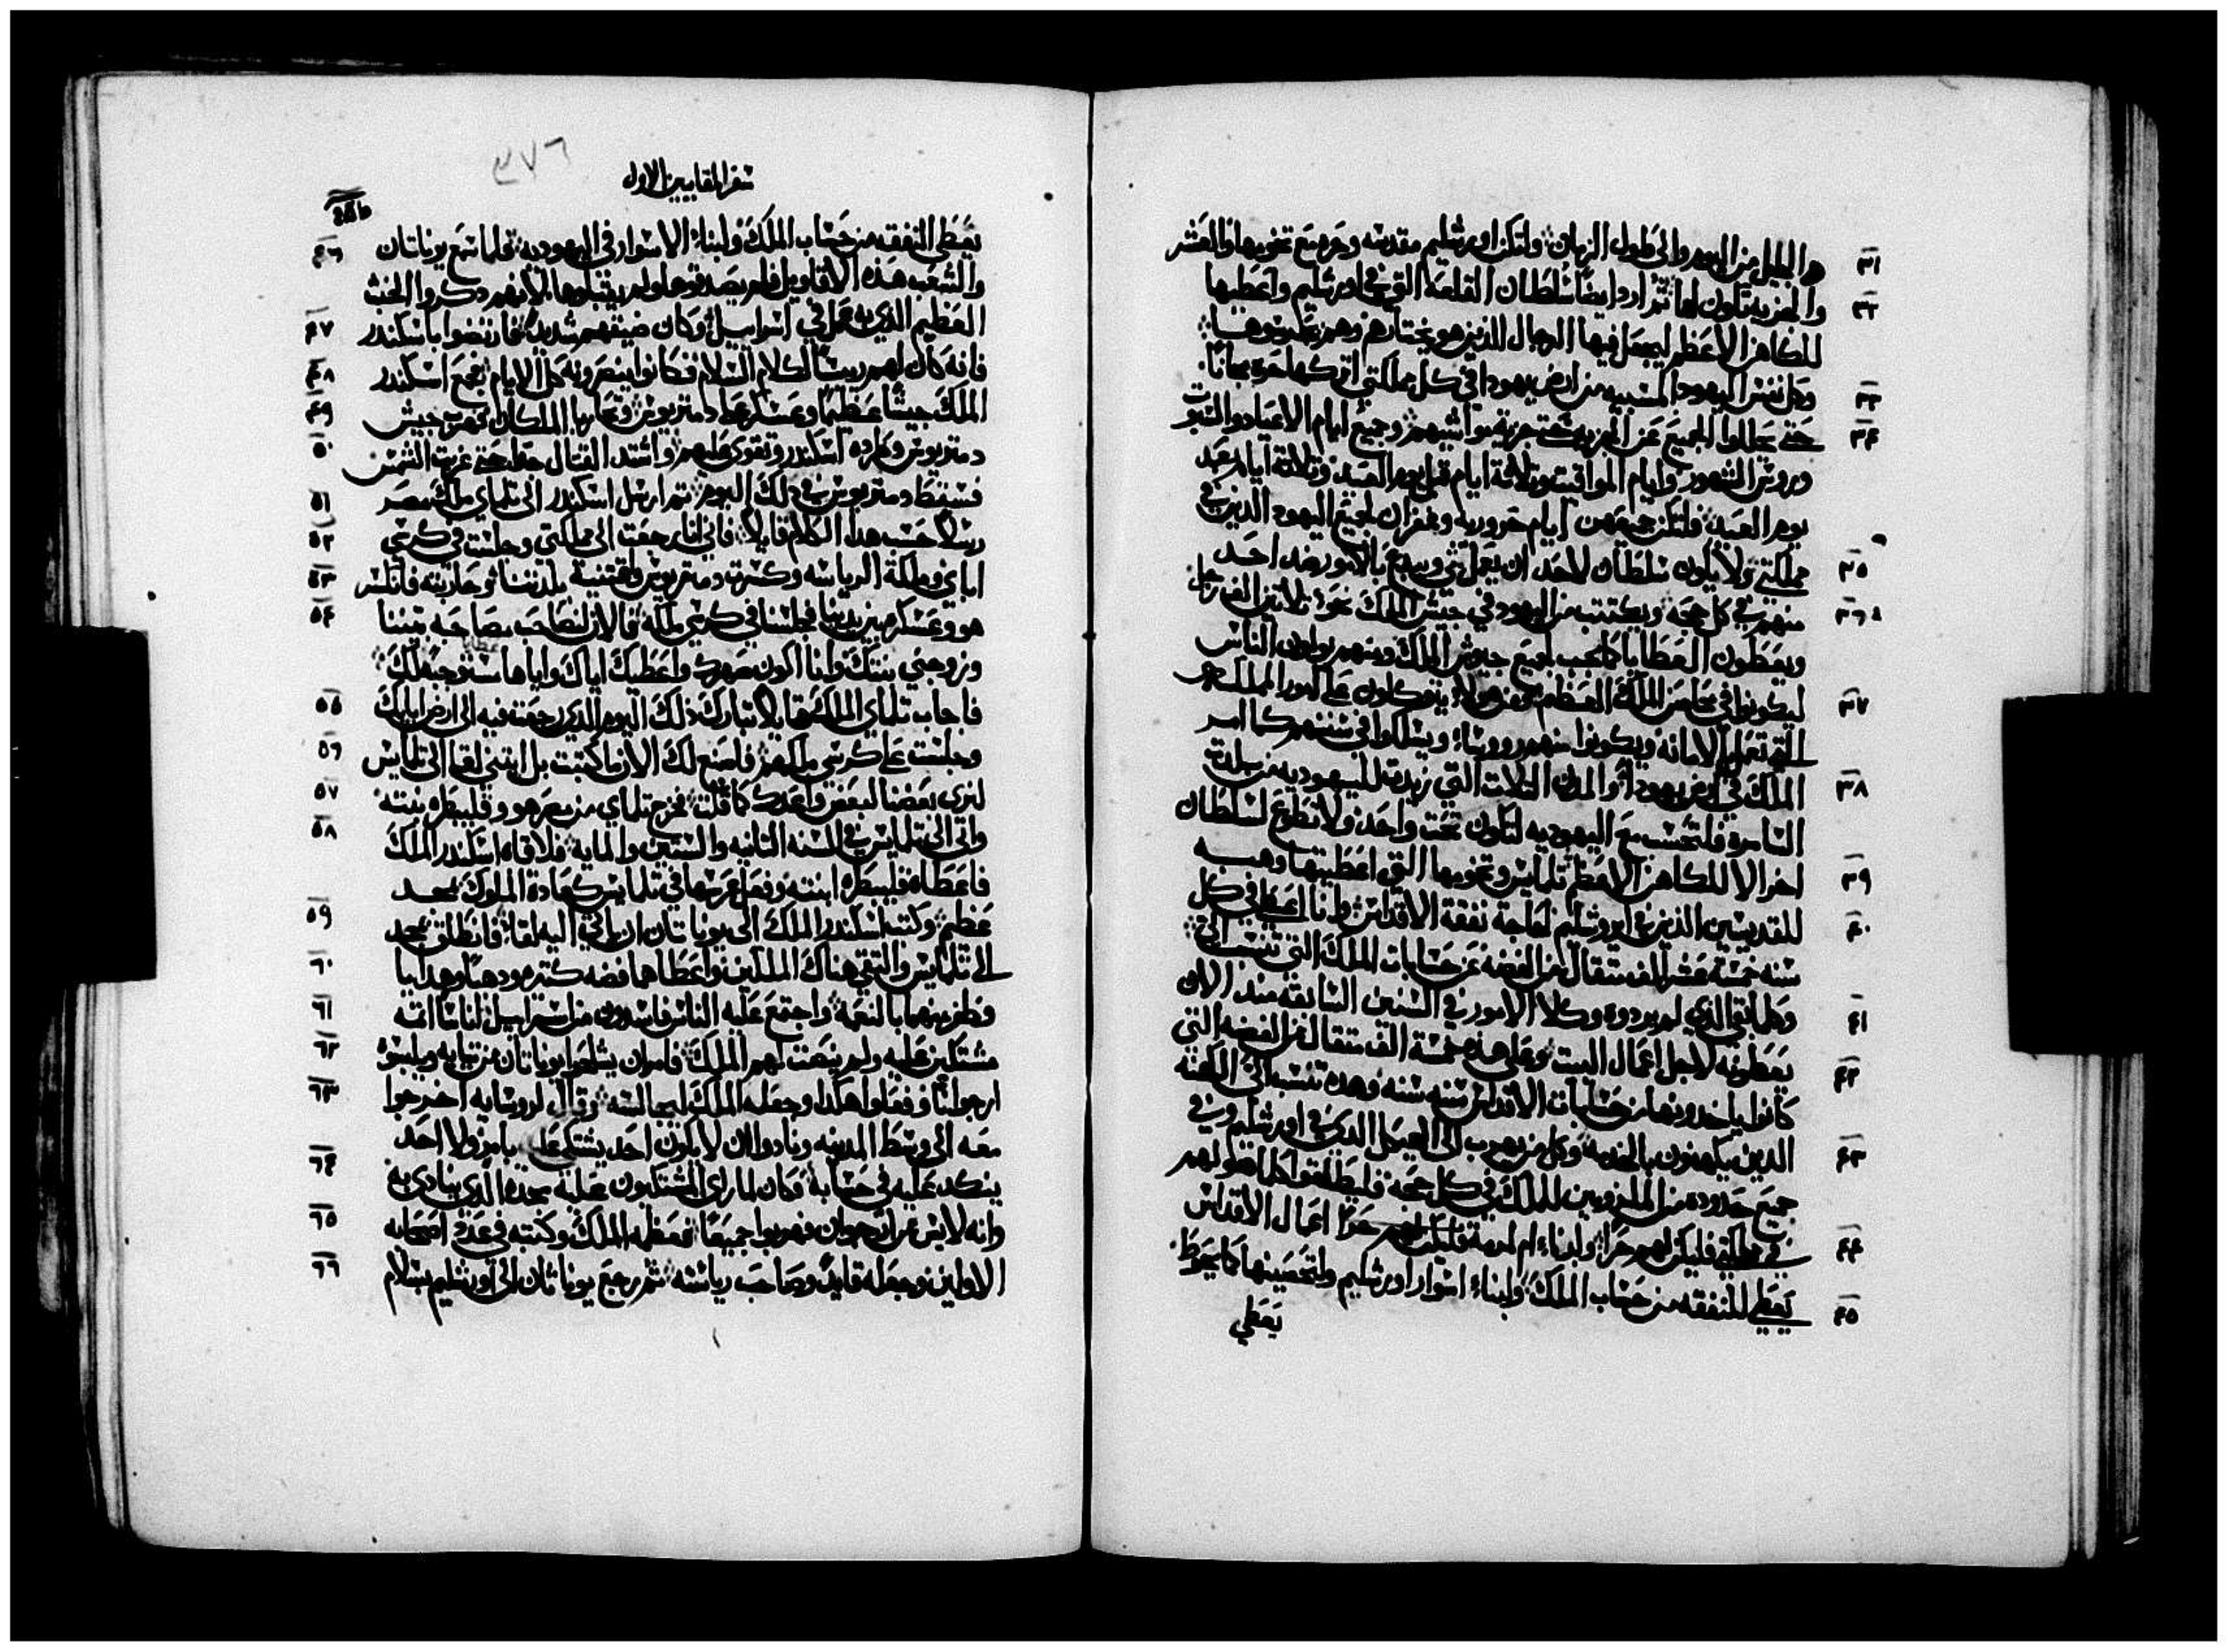 والجليل من اليوم والى طول الزمان ولتكن اورشليم مقدسه وحره مع تخومها والعشر
٣١
والجزيه تكون لها ثم اردد ايضا سلطان القلعة التي في اورشليم واعطيها
٣٢
للكاهن الاعظم ليجعل فيها الرجال الذين هو يختارهم وهم يحرسوها
وكل نفس اليهود المسبيه من ارض يهودا في كل مملكتي اتركها حره مجانا
٣٣
حتى يحللوا الجميع عن الجزيه حتى جزية مواشيهم وجميع ايام الاعياد والسبوت
٣٤
وروس الشهور وايام المواقيت وثلاثة ايام قبل يوم العيد وثلاثة ايام بعد
يوم العيد فلتكن جميعهن ايام حروريه وغفران لجميع اليهود الذين في
مملكتي ولا يكون سلطان لاحد ان يعمل شي ويبدع بالامور ضد احد
٣٥
منهم في كل جهة ويكتتب من اليهود في جيش الملك نحو ثلاثين الف رجل
٣٦
ويعطون العطايا كما يجب لجميع جيوش الملك ومنهم يولون الناس
ليكونوا في محاصن الملك العظيم ومن هولاء يتوكلون على امور المملكه
٣٧
التي تعمل بالامانه ويكونوا منهم روسا ويسلكوا في سننهم كما امر
الملك في ارض يهودا والمدن الثلاث التي زيدت لليهوديه من بلدت
٣٨
السامره فلتحسب مع اليهوديه لتكون تحت واحد ولا تطع لسلطان
اخر الا للكاهن الاعظم تلمايس وتخومها التي اعطيتها وهبه
٣٩
للقديسين الذين في اورشليم لحاجة نفقة الاقداس وانا اعطي في كل
٤٠
سنه خمسة عشر الف مثقال من الفضه من حسابات الملك التي تنسب الي
وكل ما بقي الذي لم يردوه وكلا الامور في السنين السابقه منذ الان
٤١
يعطونه لاجل اعمال البيت وعلى هذه خمسة الف مثقال من الفضه التي
٤٢
كانوا ياخدونها من حسابات الاقداس سنه سنه وهده تنسب الى الكهنه
الدين يكهنون بالخدمه وكل من يهرب الى الهيكل الدي في اورشليم وفي
٤٣
جميع حدوده من الملزومين للملك في كل جهة فليطلقوا كلما هو لهم
في مملكتي فليكن لهم حرا ولبناء او لرمة اعمال الاقداس
٤٤
يعطي للنفقه من حساب الملك ولبناء اسوار اورشليم ولتحصينها كما يحوط
٤٥
يعطي
٣٧٦
سفر المقابيين الاول
يعطي النفقه من حساب الملك ولبناء الاسوار في اليهوديه فلما سمع يوناتان
٤٦
والشعب هذه الاقاويل فلم يصدقوها ولم يقبلوها لانهم دكروا الخبث
العظيم الذي عمل في اسراييل وكان ضيقهم شديدا فارتضوا باسكندر
٤٧
فانه كان لهم ريسا لكلام السلام فكانوا ينصرونه كل الايام فجمع اسكندر
٤٨
الملك جيشا عظيما وعسكر على دمتريوس وتحاربا الملكان فهرب جيش
٤٩
دمتريوس وطرده اسكندر وتقوى عليهم واشتد القتال جدا حتى غربت الشمس
٥٠
فسقط دمتريوس في ذلك اليوم ثم ارسل اسكندر الى تلماي ملك مصر
٥١
رسلا حسب هدا الكلام قايلا فاني انا رجعت الى مملكتي وجلست في كرسي
٥٢
اباي وملكة الرياسه وكسرت دمتريوس واقتنية بلدتنا وحاربته فانكسر
٥٣
هو وعسكره بين يدينا فجلسنا في كرسي ملكه فالان لنصاحب مصاحبه بيننا
٥٤
وزوجني بنتك وانا اكون صهرك واعطيك اياك واياها مستوجبه لك
فاجاب تلماي الملك قايلا تبارك ذلك اليوم الدي رجعت فيه الى ارض ابايك
٥٥
وجلست على كرسي ملكهم فاصنع لك الان ما كتبت بل ايتني لقا الى تلمايس
٥٦
لنرى بعضنا لبعض واعدك كما قلت فخرج تلماي من مصر هو وقليبطره بنته
٥٧
واتى الى تلمايس في السنه الثانيه والستين والمايه فلاقاه اسكندر الملك
٥٨
فاعطاه قليبطره ابنته وفعل عرسها في تلمايس كعادة الملوك بمجد
عظيم وكتب اسكندر الملك الى يوناتان ان ياتي اليه لقا فانطلق بمجد
٥٩
الى تلمايس والتقى هناك الملكين واعطاهما فضه كتير ودهبا وهدايا
٦٠
وظفر منهما بالنعمه واجتمع عليه الناس فاسدون من اسراييل اناسا اثمه
٦١
مشتكين عليه ولم ينصت لهم الملك فامر ان يشلحوا يوناتان من تيابه ويلبسوه
٦٢
ارجوانا ففعلوا هكدا وجعله الملك ليجالسه وقال لروسايه اخرجوا
٦٣
معه الى وسط المدينه ونادوا ان لا يكون احد يشتكي عليه بامر ولا احد
ينكد عليه في حسابه فكان لما راى المشتكون عليه مجده الدي ينادى به
٦٤
وانه لابس من ارجوان فهربوا جميعا فعظمه الملك وكتبه في عدة اصحابه
٦٥
الاولين وجعله قايدا وصاحب رياسته ثم رجع يوناتان الى اورشليم بسلام
٦٦